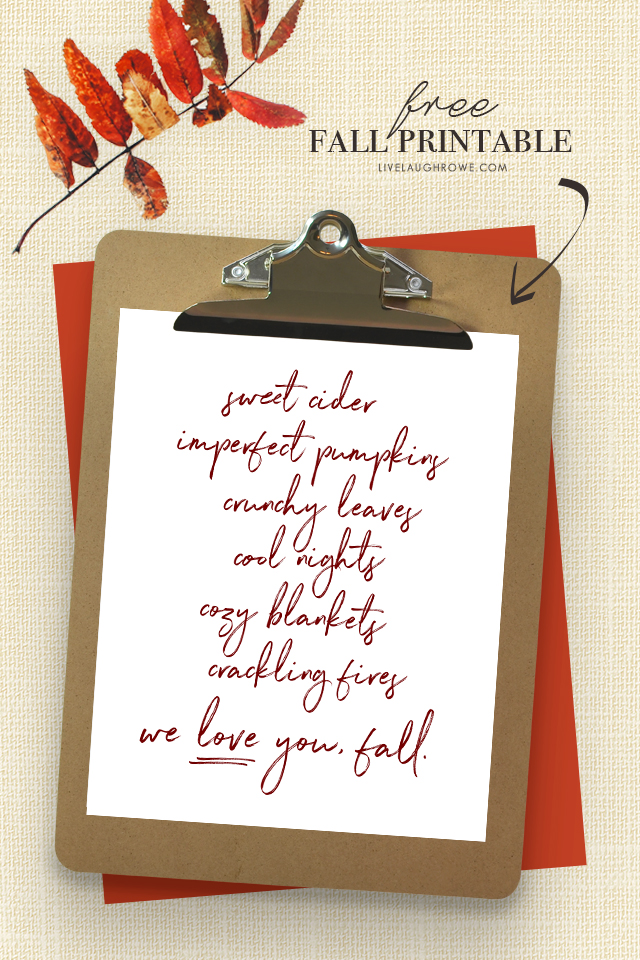 free
FALL PRINTABLE
LIVELAUGHROWE.COM
sweet cider
imperfect pumpkins
crunchy leaves
cool nights
cozy blankets
crackling fires
we love you, fall.